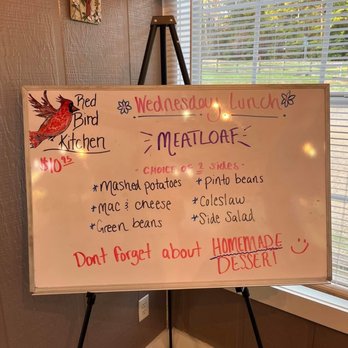 Red
Bird
Kitchen
$10.95
Wednesday Lunch
MEATLOAF
- CHOICE OF 2 SIDES -
* Mashed potatoes
* Mac & cheese
* Green beans
* Pinto beans
* Coleslaw
* Side Salad
Dont forget about HOMEMADE
DESSERT